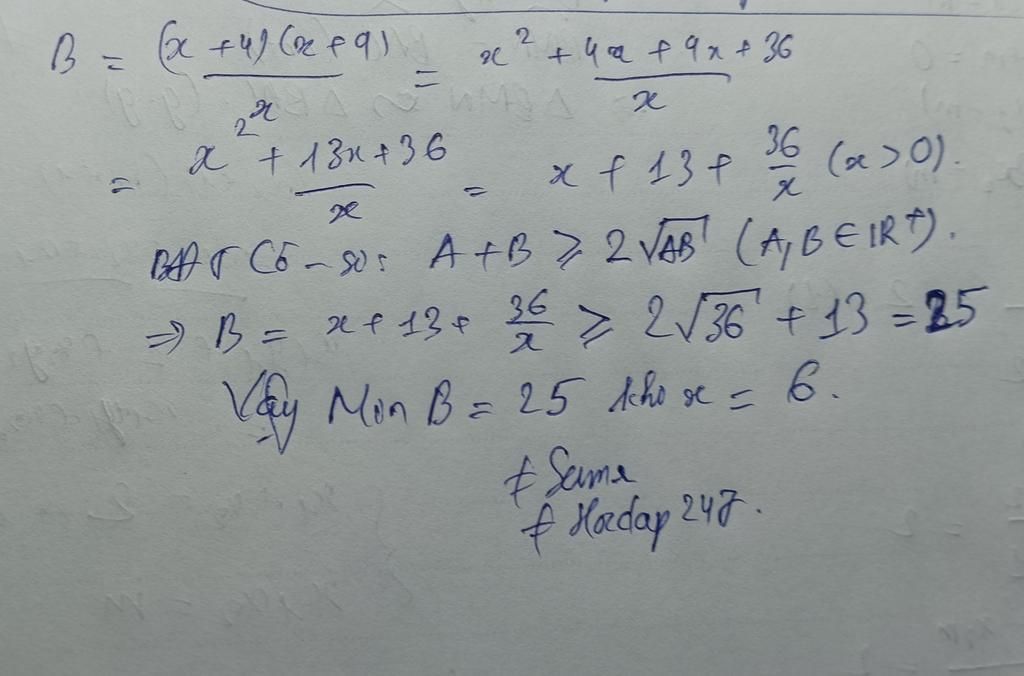 B = (x + 4)(x + 9) / x = x² + 4x + 9x + 36 / x
= x² + 13x + 36 / x = x + 13 + 36/x (x > 0).
BĐT Cô - si: A + B ⩾ 2√AB (A, B ∈ IR⁺).
⇒ B = x + 13 + 36/x ⩾ 2√36 + 13 = 25
Vậy Min B = 25 khi x = 6.
# Sama
# Hoidap 247.